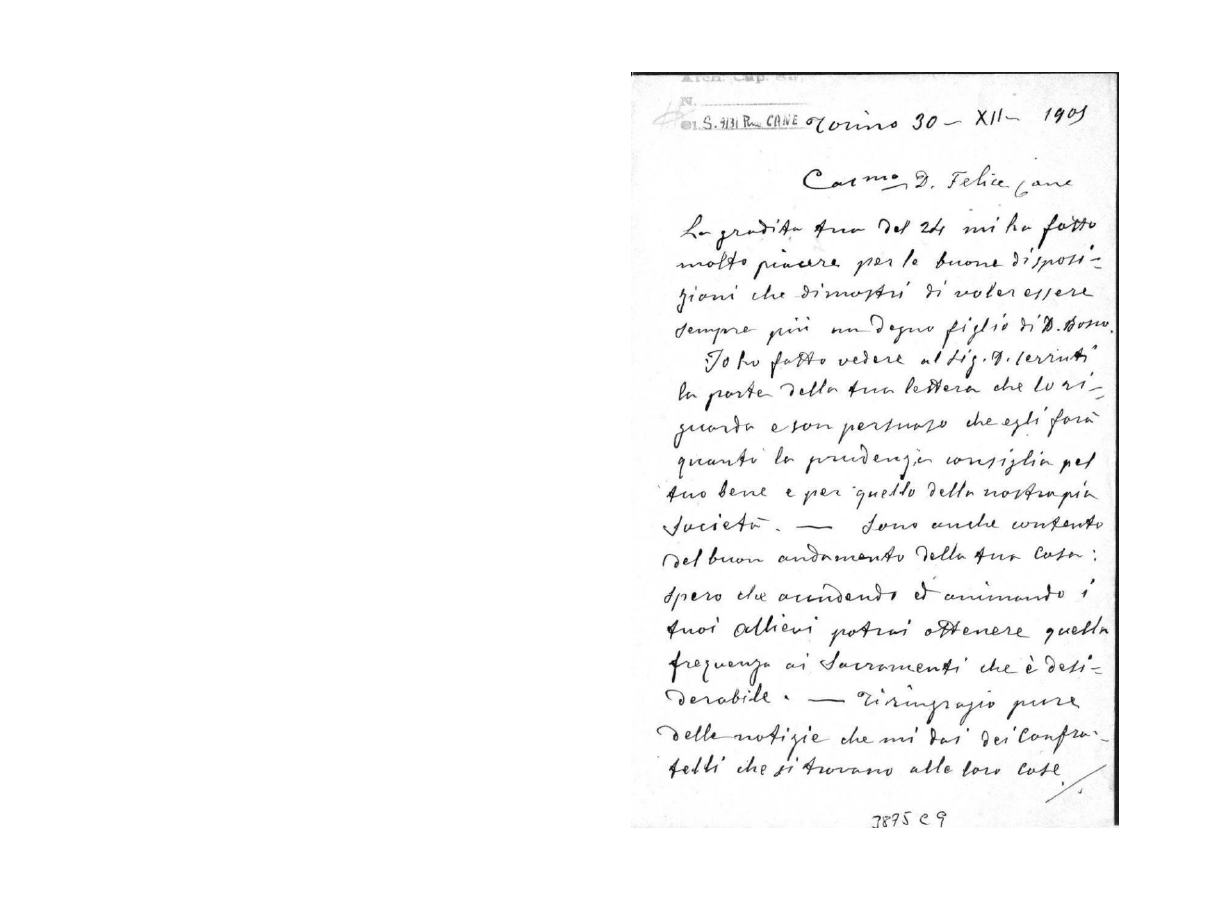 Arch. Cap. Su.
N.
Cl. S. 9131 Rua CANE
Torino 30 - XII - 1909
Car.mo D. Felice Cane
La gradita tua del 24 mi ha fatto
molto piacere per le buone disposi-
zioni che dimostri di voler essere
sempre più un degno figlio di D. Bosco.
Io ho fatto vedere al Sig. D. Cerruti
la parte della tua lettera che lo ri-
guarda e son persuaso che egli farà
quanto la prudenza consiglia pel
tuo bene e per quello della nostra pia
Società. — Sono anche contento
del buon andamento della tua Casa:
spero che accudendo ed animando i
tuoi allievi potrai ottenere quella
frequenza ai Sacramenti che è desi-
derabile. — Ti ringrazio pure
delle notizie che mi dai dei Confra-
telli che si trovano alle loro case
./.
3875 C 9